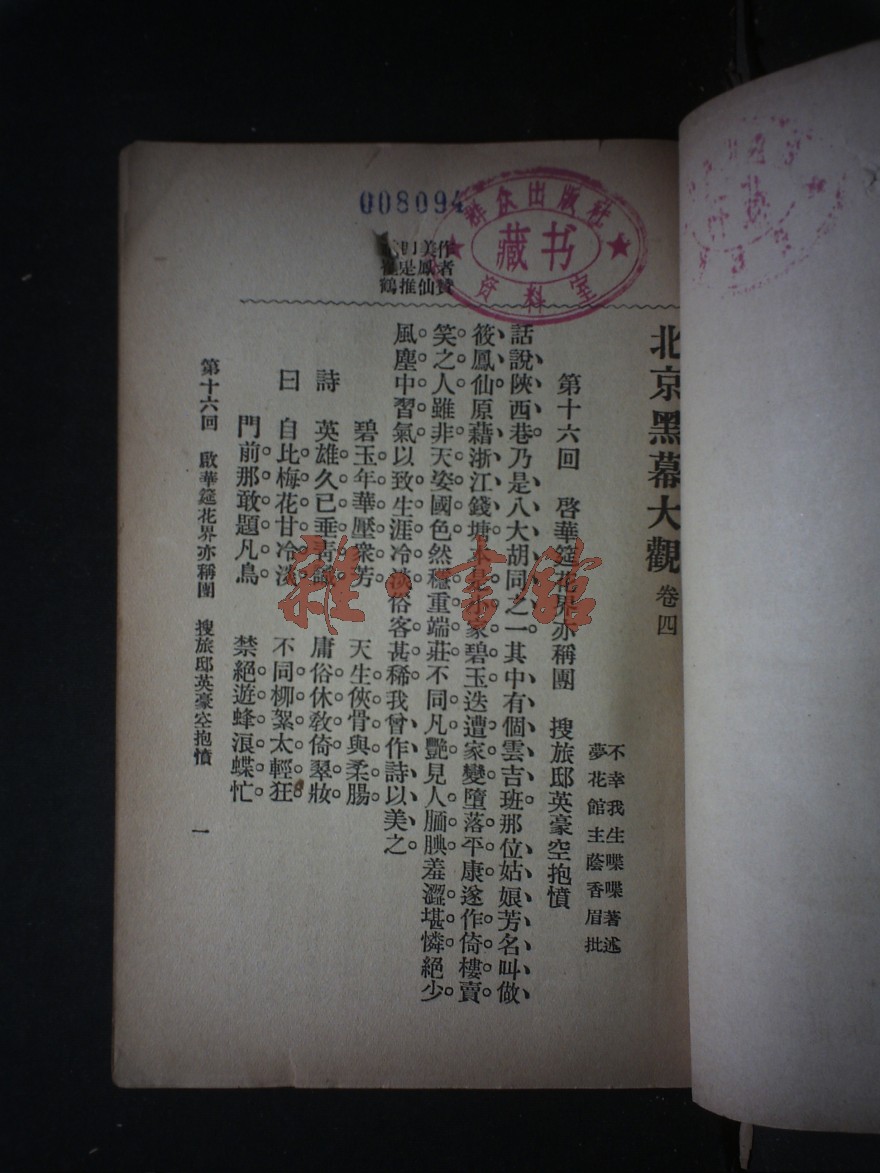 北京黑幕大觀 卷四
不幸我生喋喋著述
夢花館主蔭香眉批
第十六回 啓華筵花界亦稱團 搜旅邸英豪空抱憤
話說陝西巷乃是八大胡同之一其中有個雲吉班那位姑娘芳名叫做
筱鳳仙原藉浙江錢塘本是小家碧玉迭遭家變墮落平康遂作倚樓賣
笑之人雖非天姿國色然穩重端莊不同凡艷見人腼腆羞澀堪憐絕少
風塵中習氣以致生涯冷淡俗客甚稀我曾作詩以美之
碧玉年華壓衆芳 天生俠骨與柔腸
詩 英雄久已垂青 庸俗休教倚翠妝
曰 自比梅花甘冷淡 不同柳絮太輕狂
門前那敢題凡鳥 禁絕遊蜂浪蝶忙
作者贊
美鳳仙
是推
鶴
第十六回 啟華筵花界亦稱團 搜旅邸英豪空抱憤
一
008094
群众出版社
藏书
资料室
雜·書館